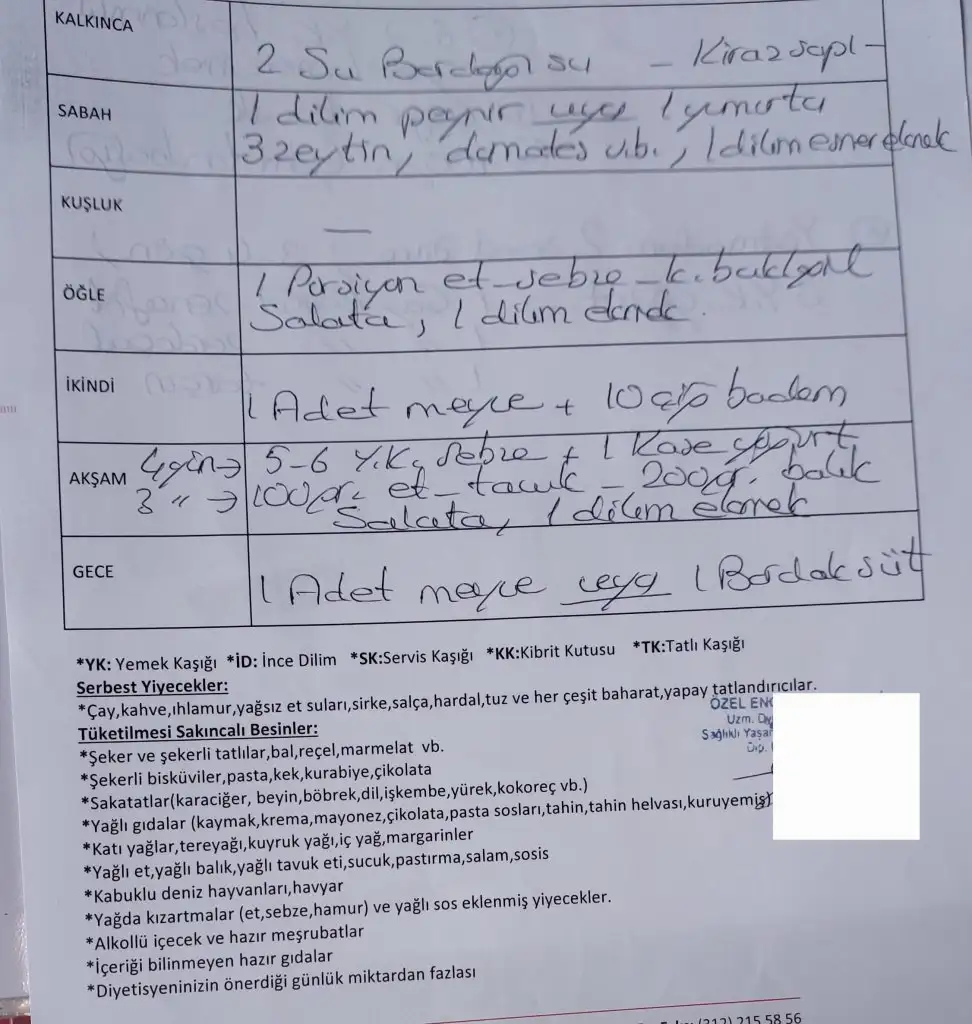 KALKINCA
2 Su Bardağı su - Kiraz sapı -
SABAH
1 dilim peynir veya 1 yumurta
3 zeytin, domades v.b., 1 dilim esmer ekmek
KUŞLUK
—
ÖĞLE
1 Porsiyon et - sebze - k. baklagil
Salata, 1 dilim ekmek.
İKİNDİ
1 Adet meyve + 10 çiğ badem
AKŞAM
4 gün → 5-6 Y.K. sebze + 1 Kase yoğurt,
3 " → 100 gr. et - tavuk - 200 gr. balık
Salata, 1 dilim ekmek
GECE
1 Adet meyve veya 1 Bardak süt
*YK: Yemek Kaşığı *İD: İnce Dilim *SK:Servis Kaşığı *KK:Kibrit Kutusu *TK:Tatlı Kaşığı
Serbest Yiyecekler:
*Çay,kahve,ıhlamur,yağsız et suları,sirke,salça,hardal,tuz ve her çeşit baharat,yapay tatlandırıcılar.
ÖZEL EN
Uzm. Diy
Sağlıklı Yaşa
Dip.
Tüketilmesi Sakıncalı Besinler:
*Şeker ve şekerli tatlılar,bal,reçel,marmelat vb.
*Şekerli bisküviler,pasta,kek,kurabiye,çikolata
*Sakatatlar(karaciğer, beyin,böbrek,dil,işkembe,yürek,kokoreç vb.)
*Yağlı gıdalar (kaymak,krema,mayonez,çikolata,pasta sosları,tahin,tahin helvası,kuruyemiş)
*Katı yağlar,tereyağı,kuyruk yağı,iç yağ,margarinler
*Yağlı et,yağlı balık,yağlı tavuk eti,sucuk,pastırma,salam,sosis
*Kabuklu deniz hayvanları,havyar
*Yağda kızartmalar (et,sebze,hamur) ve yağlı sos eklenmiş yiyecekler.
*Alkollü içecek ve hazır meşrubatlar
*İçeriği bilinmeyen hazır gıdalar
*Diyetisyeninizin önerdiği günlük miktardan fazlası
(212) 215 58 56